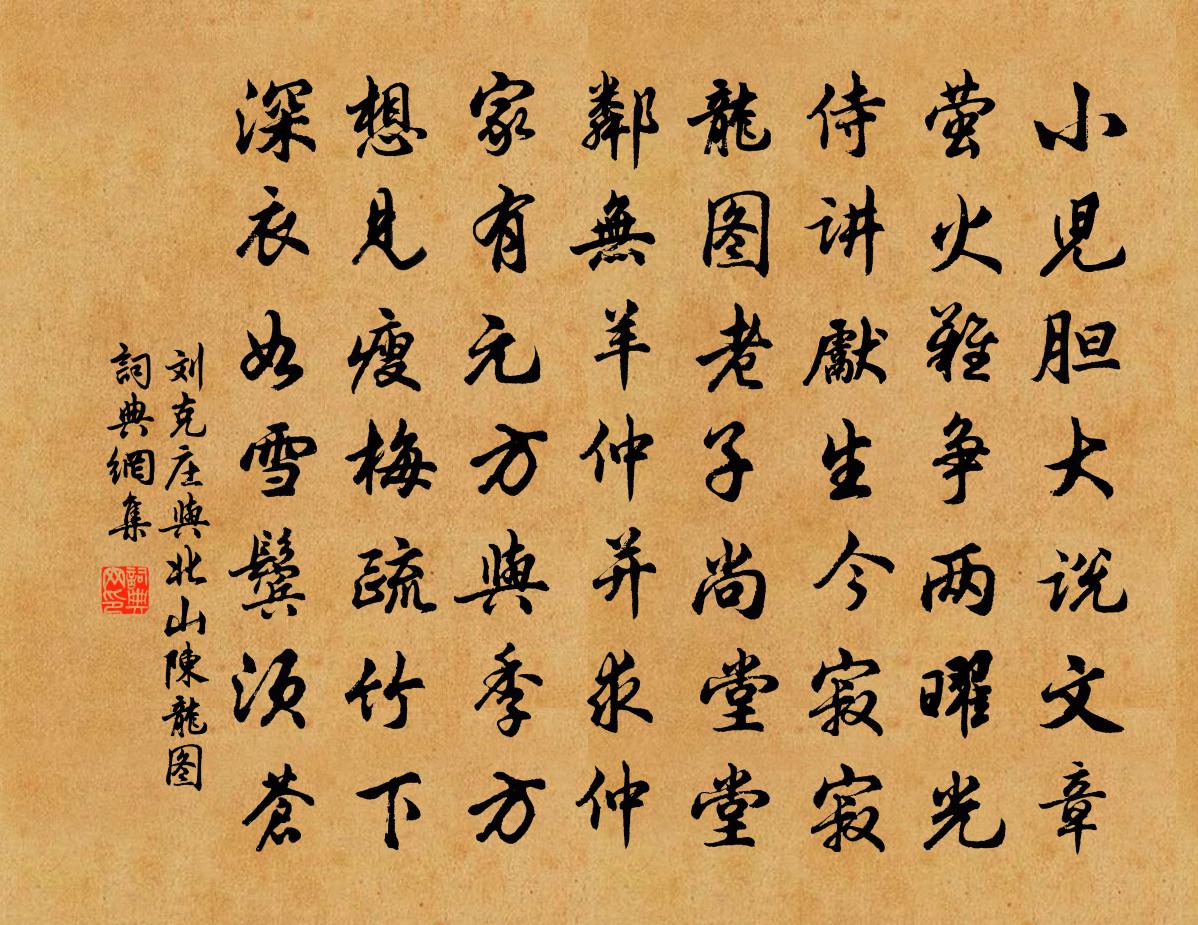 小児胆大说文章
萤火難争两曜光
侍讲獻生今寂寂
龍图老子尚堂堂
鄰無羊仲并求仲
家有元方與季方
想見瘦梅疏竹下
深衣如雪鬓须蒼
刘克庄與北山陳龍图
詞典網集
詞典网印